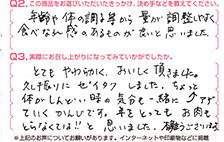 Q2.この商品をお選びいただいたきっかけ、決め手などを教えてください。
年齢や体の調子等から量が調整しやすく
食べなれ感のあるものが良いと思いました。
Q3.実際にお召し上がりになってみていかがでしたか。
とてもやわらかく、おいしく頂きました。
久し振りにゼイタクしました。ちょっと
体がしんどい時の気分を一緒に
ていくかんじです。年をとってもお肉を
とらなくちは!!と思いました。有難うございました
※上記のお声についてお願いがあります。インターネットや印刷物などに掲載